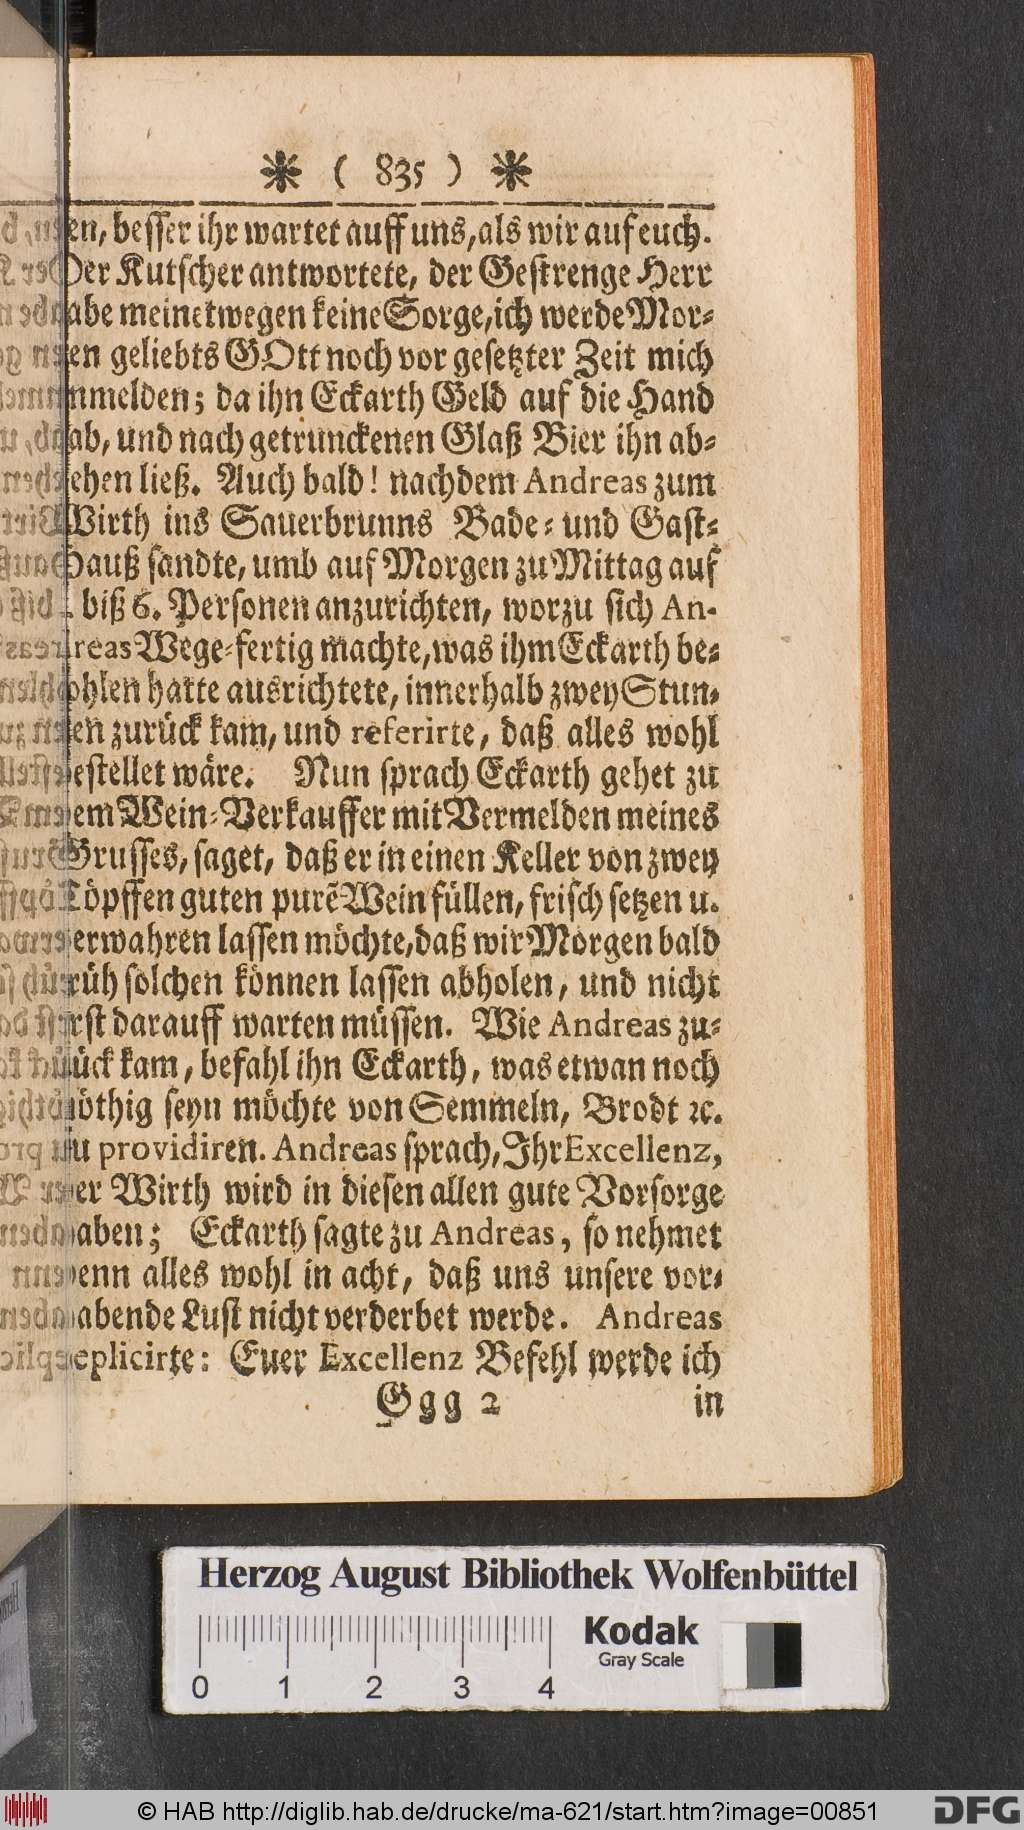 * ( 835 ) *
en, besser ihr wartet auff uns, als wir auf euch.
Der Kutscher antwortete, der Gestrenge Herr
abe meinetwegen keine Sorge, ich werde Mor-
en geliebts GOtt noch vor gesetzter Zeit mich
nmelden; da ihn Eckarth Geld auf die Hand
ab, und nach getrunckenen Glaß Bier ihn ab-
ehen ließ. Auch bald! nachdem Andreas zum
Wirth ins Sauerbrunns Bade- und Gast-
Hauß sandte, umb auf Morgen zu Mittag auf
biß 6. Personen anzurichten, worzu sich An-
reas Wege-fertig machte, was ihm Eckarth be-
ohlen hatte ausrichtete, innerhalb zwey Stun-
en zurück kam, und referirte, daß alles wohl
estellet wäre. Nun sprach Eckarth gehet zu
em Wein-Verkauffer mit Vermelden meines
Grusses, saget, daß er in einen Keller von zwey
Töpffen guten purẽ Wein füllen, frisch setzen u.
erwahren lassen möchte, daß wir Morgen bald
rüh solchen können lassen abholen, und nicht
rst darauff warten müssen. Wie Andreas zu-
ück kam, befahl ihn Eckarth, was etwan noch
öthig seyn möchte von Semmeln, Brodt ꝛc.
u providiren. Andreas sprach, Ihr Excellenz,
er Wirth wird in diesen allen gute Vorsorge
aben; Eckarth sagte zu Andreas, so nehmet
enn alles wohl in acht, daß uns unsere vor-
abende Lust nicht verderbet werde. Andreas
eplicirte: Euer Excellenz Befehl werde ich
Ggg 2 in
Herzog August Bibliothek Wolfenbüttel
Kodak
Gray Scale
0 1 2 3 4
© HAB http://diglib.hab.de/drucke/ma-621/start.htm?image=00851
DFG